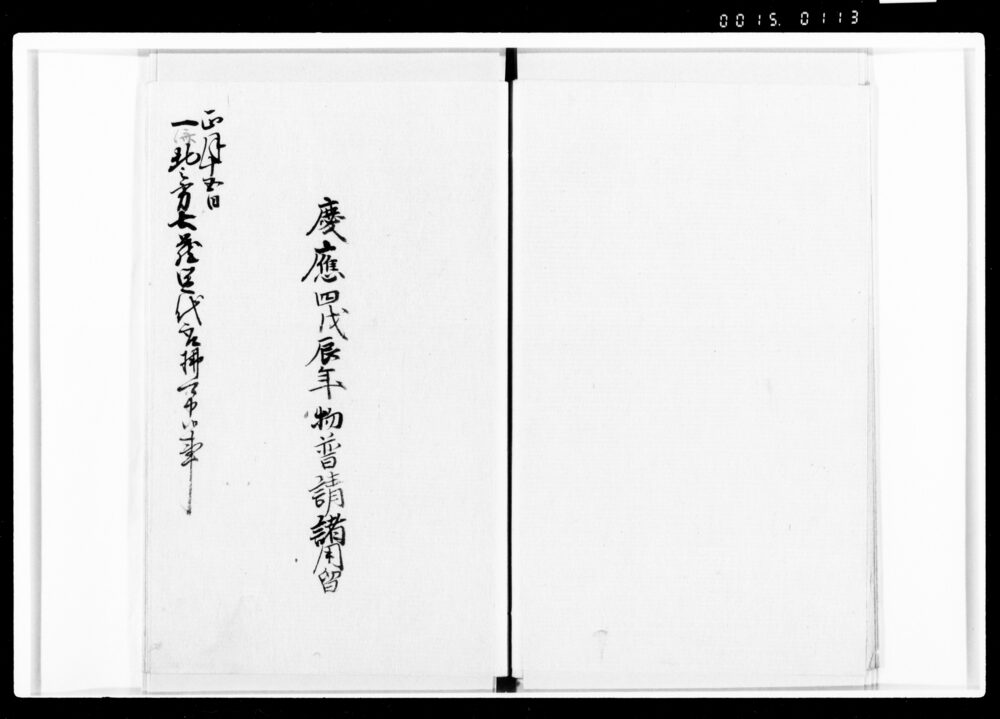 0015. 0113
慶應四戊辰年 物普請諸用留
正月十五日
一 北之方土蔵足代取拂